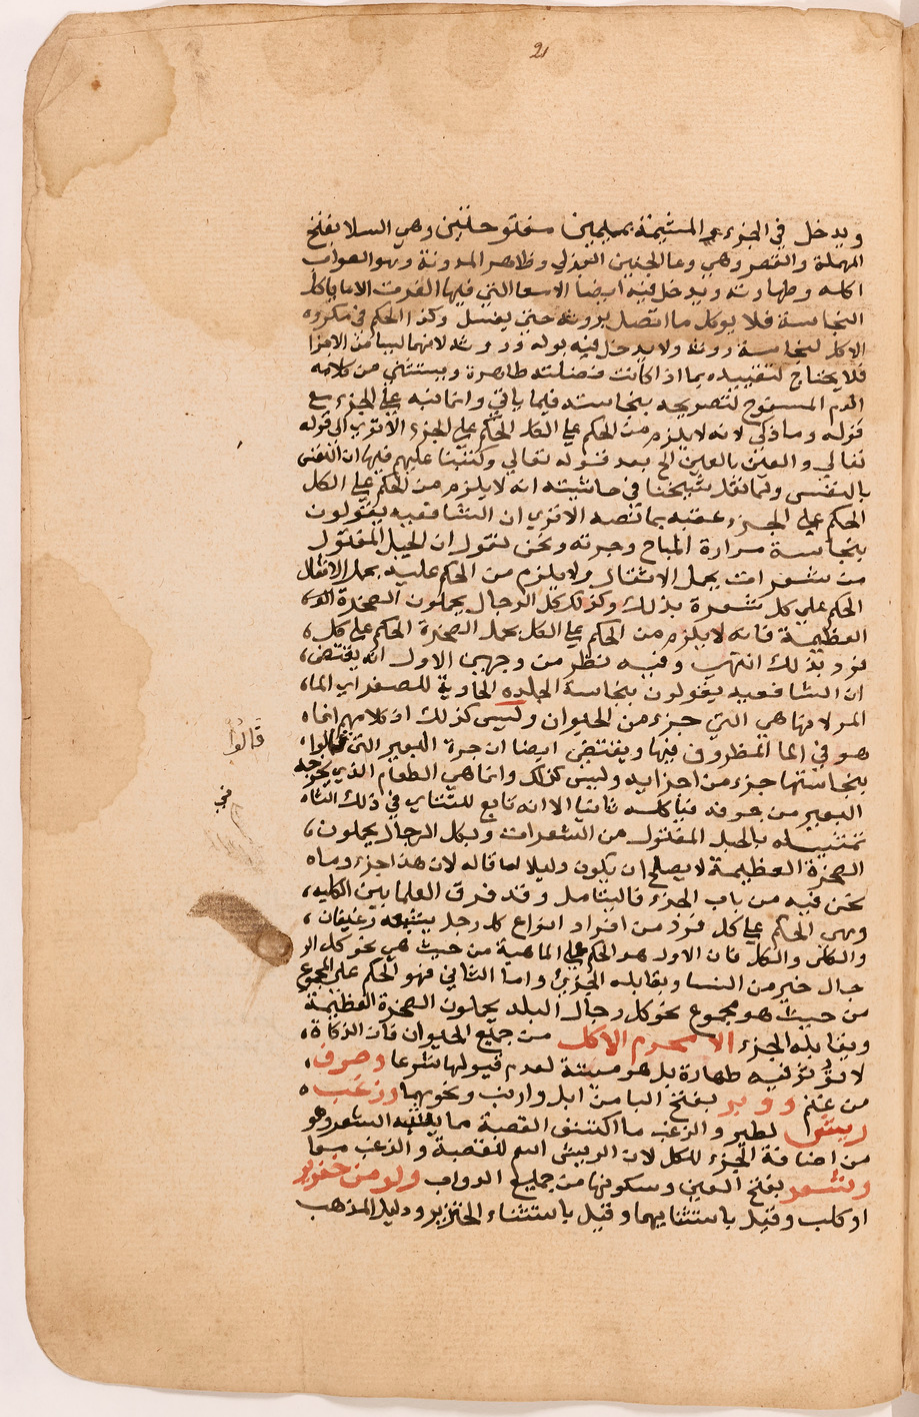 21
ويدخل في الجزء المشيمة بميمين مفتوحتين وهي السلا بفتح
المهملة والقصر وهي وعا الجنين البرزلي وظاهر المدونة وهو الصواب
اكله وطهارته ويدخل فيه ايضا الامعا التي فيها الفرث الا ما ياكل
النجاسة فلا يوكل ما اتصل بروثه حتى يغسل وكذا الحكم في مكروه
الاكل لنجاسة روثه ولا يدخل فيه بوله وروثه لانهما ليسا من الاجزا
فلا يحتاج لتقييده بما اذا كانت فضلته طاهرة ويستثنى من كلامه
الدم المسفوح لتصريحه بنجاسته فيما ياتي وانما نبه على الجزء مع
قوله وما ذكي لانه لا يلزم من الحكم على الكل الحكم على الجزء الا ترى الى قوله
تعالى والعين بالعين الخ بعد قوله تعالى وكتبنا عليهم فيها ان النفس
بالنفس ولما نقل شيخنا في حاشيته انه لا يلزم من الحكم على الكل
الحكم على الجزء عقبه بما نصه الا ترى ان الشافعيه يقولون
بنجاسة مرارة المباح وجرته ونحن نقول ان الحبل المفتول
من شعرات يحمل الاثقال ولا يلزم من الحكم عليه بحمل الاثقال
الحكم على كل شعرة بذلك وكذلك كل الرجال يحملون الصخرة
العظيمة فانه لا يلزم من الحكم على الكل بحمل الصخرة الحكم على كل
فرد بذلك انتهى وفيه نظر من وجهين الاول انه يقتضى
ان الشافعيه يقولون بنجاسة الجلده الحاوية للمصفر اي الما
المر لانها هي التي جزء من الحيوان وليس كذلك اذ كلامهم انما
هو في الما المظروف فيها ويقتضى ايضا ان جرة البعير التي قالوا
بنجاستها جزء من اجزايه وليس كذلك وانما هي الطعام الذي يخرجه
البعير من جوفه فياكله ثانيا الا انه تابع للتتاي في ذلك الثا
تمثيله بالحبل المفتول من الشعرات وبكل الرجال يحملون
الصخرة العظيمة لا يصلح ان يكون دليلا لما قاله لان هذا جزء وما
نحن فيه من باب الجزء فاليتامل وقد فرق العلما بين الكليه
وهى الحكم على كل فرد من افراد انواع كل رجل يشبعه رغيفان
والكلي والكل فان الاول هو الحكم على الماهية من حيث هي نحو كل الر
جال خير من النسا ويقابله الجزيئ واما الثاني فهو الحكم على المجموع
من حيث هو مجموع نحو كل رجال البلد يحملون الصخرة العظيمة
ويقابله الجزء الا محرم الاكل من جميع الحيوان فان الذكاة
لا تؤثر فيه طهارة بل هو ميتة لعدم قبولها شرعا وصوف
من غنم ووبر بفتح البا من ابل وارنب ونحوهما وزغب
ريش لطير والزغب ما اكتنف القصبة مما يشبه الشعر وهو
من اضافة الجزء للكل لان الريش اسم للقصبة والزغب معا
وشعر بفتح العين وسكونها من جميع الدواب ولو من خنزير
او كلب وقيل باستثنايهما وقيل باستثناء الخنزير ودليل المذهب
قالوا